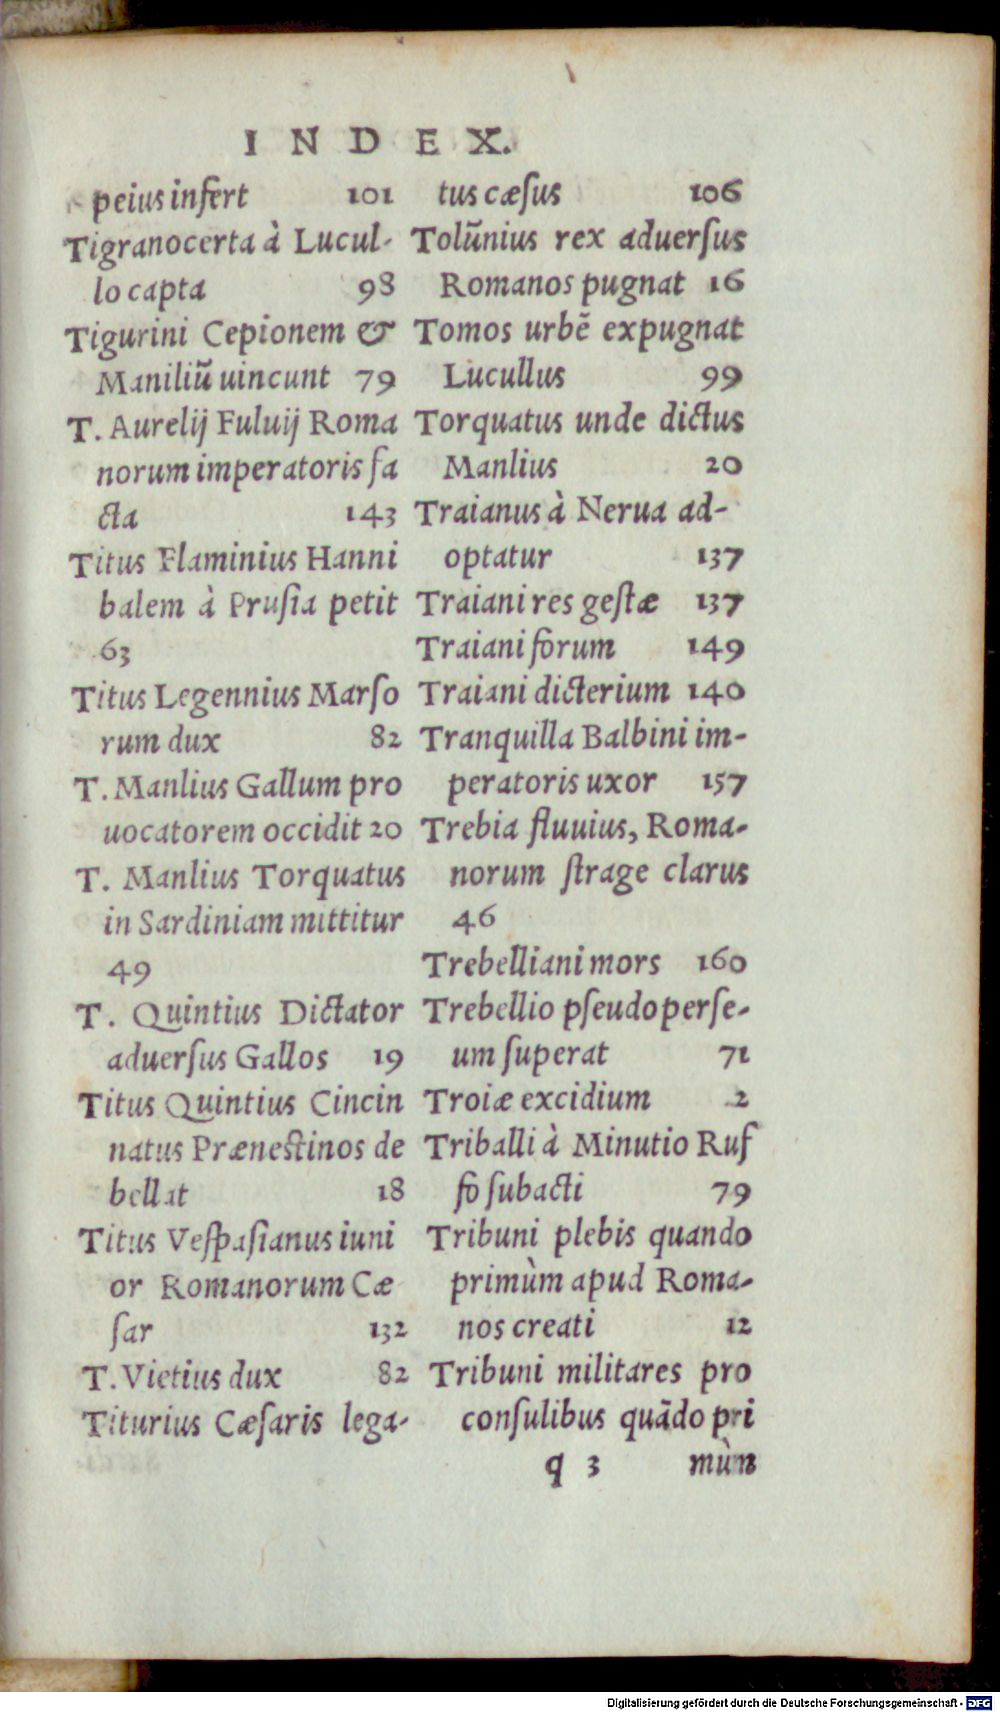 INDEX.
peius infert 101
Tigranocerta à Lucul-
lo capta 98
Tigurini Cepionem &
Maniliũ uincunt 79
T. Aurelij Fuluij Roma
norum imperatoris fa
cta 143
Titus Flaminius Hanni
balem à Prusia petit
63
Titus Legennius Marſo
rum dux 82
T. Manlius Gallum pro
uocatorem occidit 20
T. Manlius Torquatus
in Sardiniam mittitur
49
T. Quintius Dictator
aduerſus Gallos 19
Titus Quintius Cincin
natus Præneſtinos de
bellat 18
Titus Veſpaſianus iuni
or Romanorum Cæ
ſar 132
T. Vietius dux 82
Titurius Cæſaris lega-
tus cæſus 106
Tolũnius rex aduerſus
Romanos pugnat 16
Tomos urbẽ expugnat
Lucullus 99
Torquatus unde dictus
Manlius 20
Traianus à Nerua ad-
optatur 137
Traiani res geſtæ 137
Traiani forum 149
Traiani dicterium 140
Tranquilla Balbini im-
peratoris uxor 157
Trebia fluuius, Roma-
norum ſtrage clarus
46
Trebelliani mors 160
Trebellio pſeudoperſe-
um ſuperat 71
Troiæ excidium 2
Triballi à Minutio Ruf
fo ſubacti 79
Tribuni plebis quando
primùm apud Roma-
nos creati 12
Tribuni militares pro
conſulibus quãdo pri
q 3 mùn
Digitalisierung gefördert durch die Deutsche Forschungsgemeinschaft - DFG